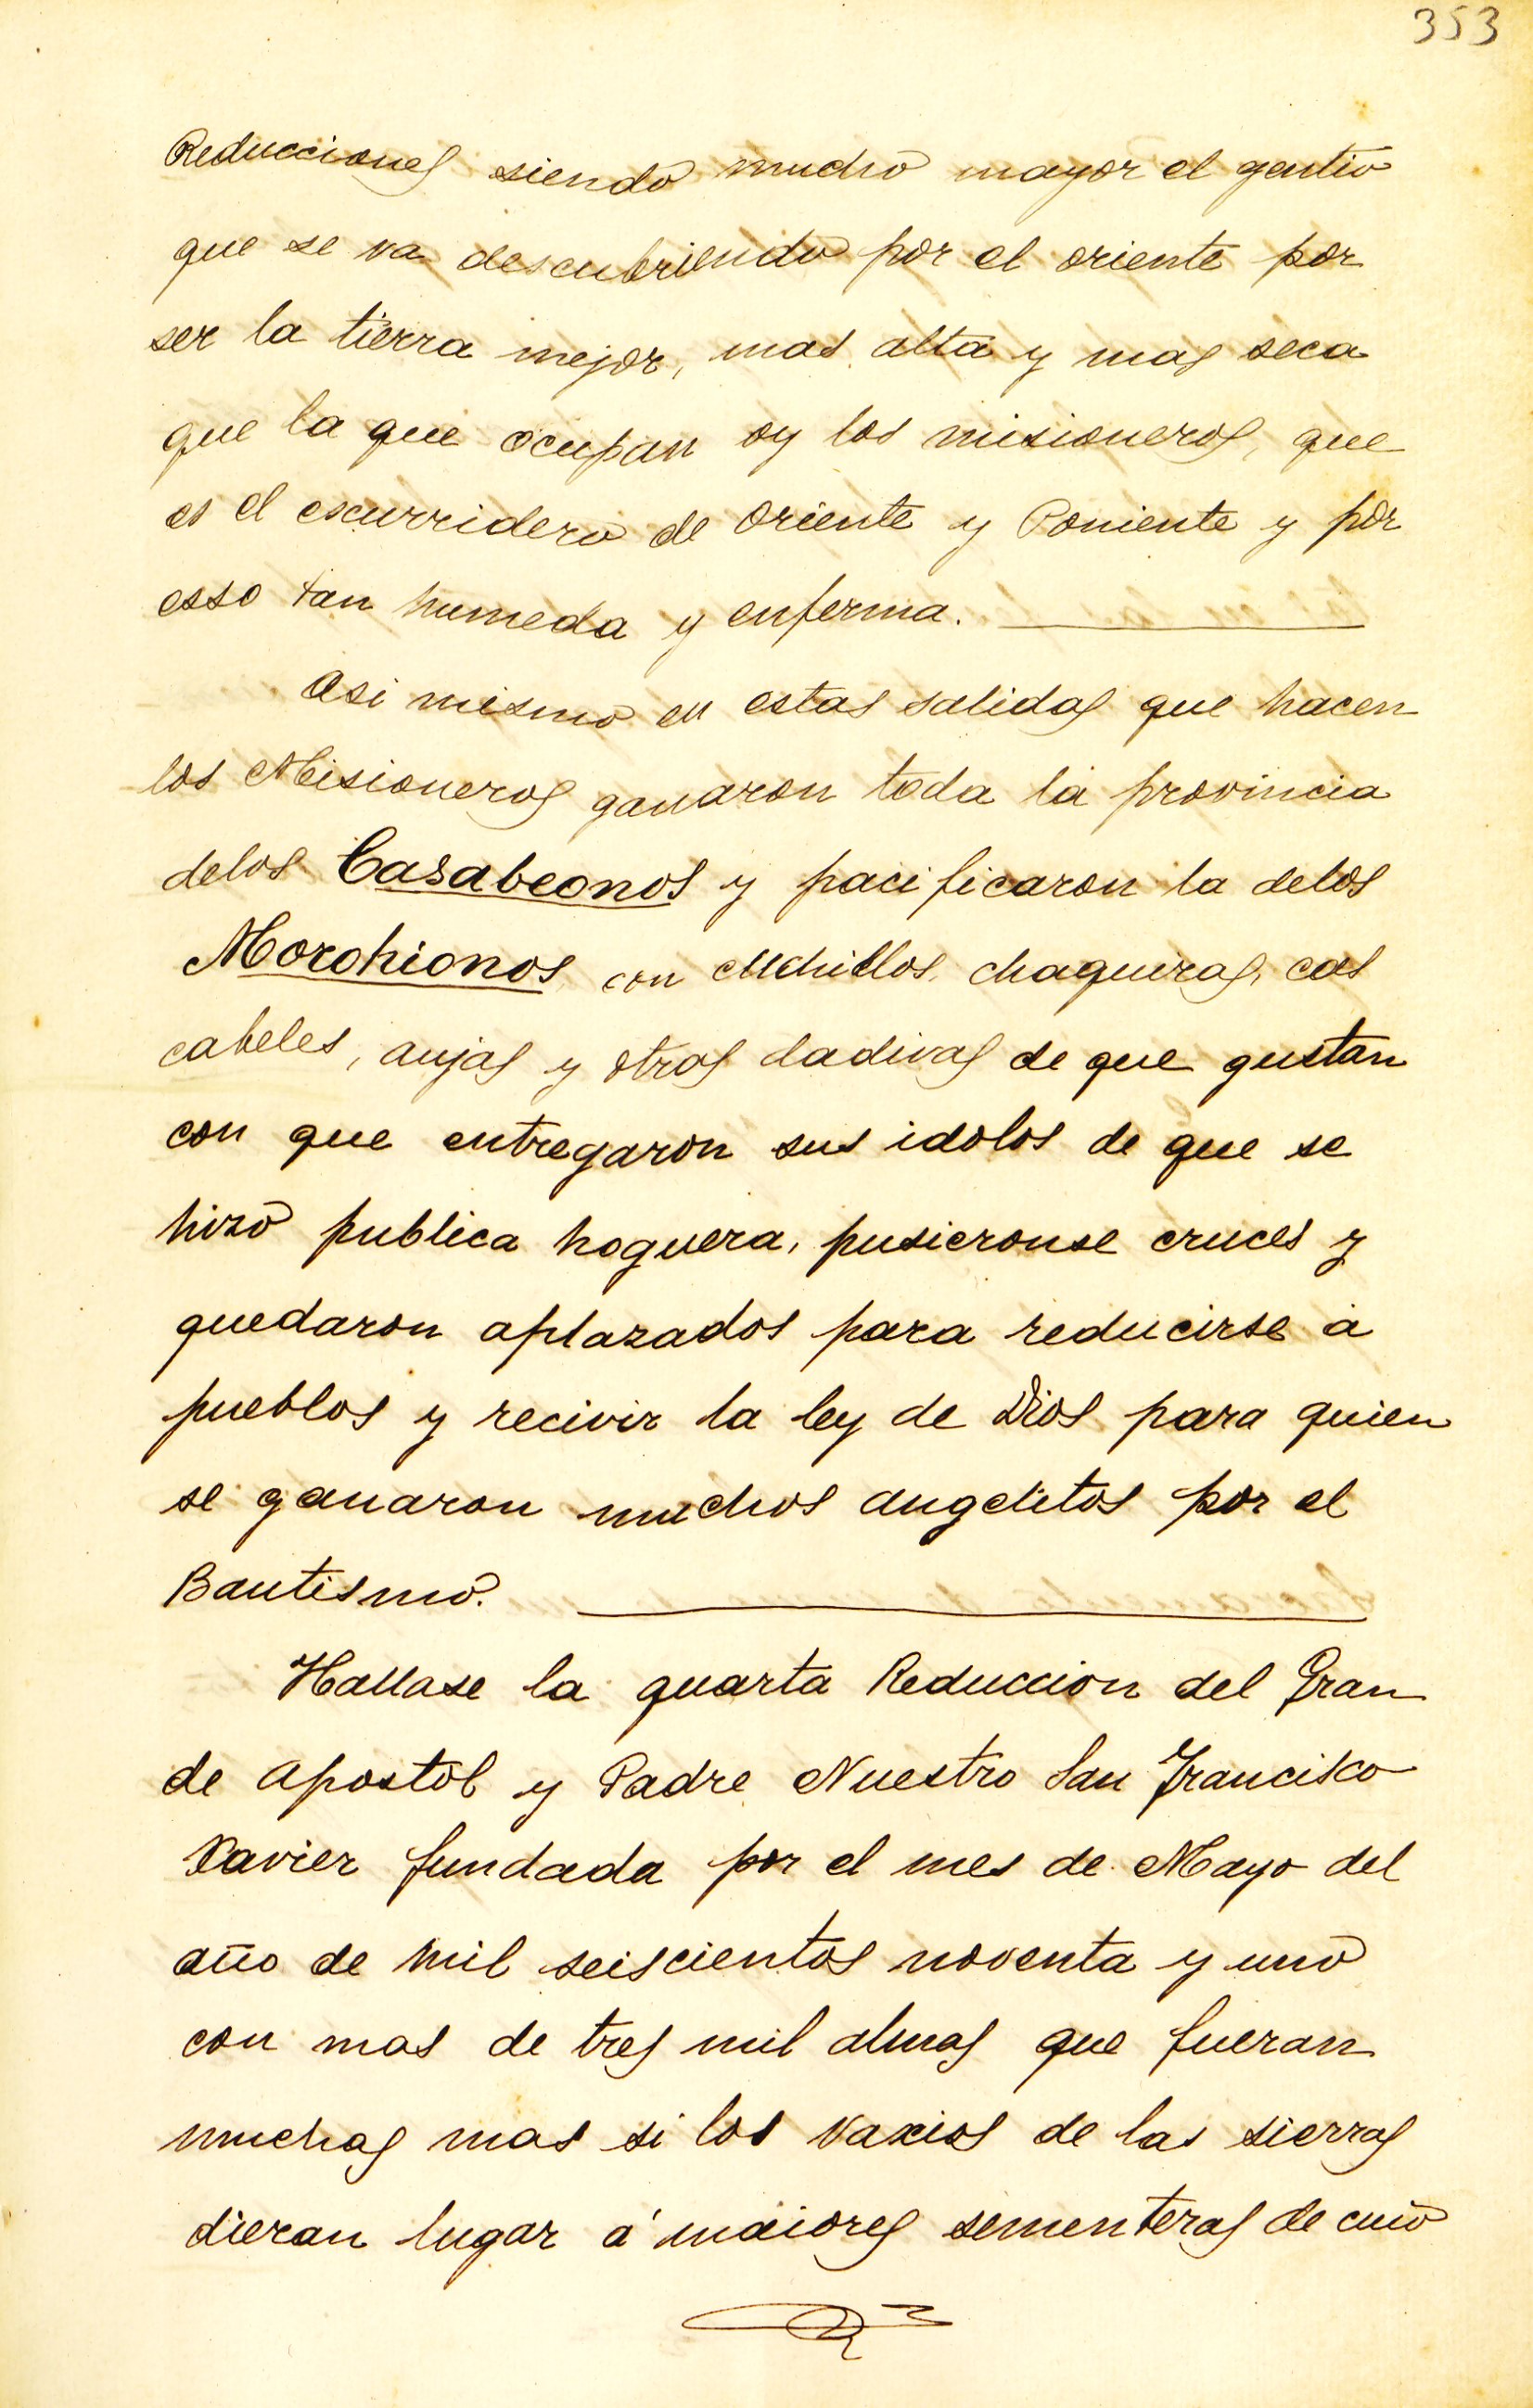 353
Reducciones siendo mucho mayor el gentio
que se va descubriendo por el oriente por
ser la tierra mejor, mas alta y mas seca
que la que ocupan oy los misioneros, que
es el escurridero de Oriente y Poniente y por
esso tan humeda y enferma.
Asi mismo en estas salidas que hacen
los Misioneros ganaron toda la provincia
delos Casabeonos y pacificaron la delos
Morohionos, con chillos, chaquiras, cas
cabeles, aujas y otras dadivas de que gustan
con que entregaron sus idolos de que se
hizo publica hoguera, pusieronse cruces y
quedaron aplazados para reducirse a
pueblos y recivir la ley de Dios para quien
se ganaron muchos angelitos por el
Bautismo.
Hallase la quarta Reduccion del Gran
de Apostol y Padre Nuestro San Francisco
Xavier fundada por el mes de Mayo del
año de mil seiscientos noventa y uno
con mas de tres mil almas que fueran
muchas mas si los vaxios de las sierras
dieran lugar á maiores sementeras de cuio